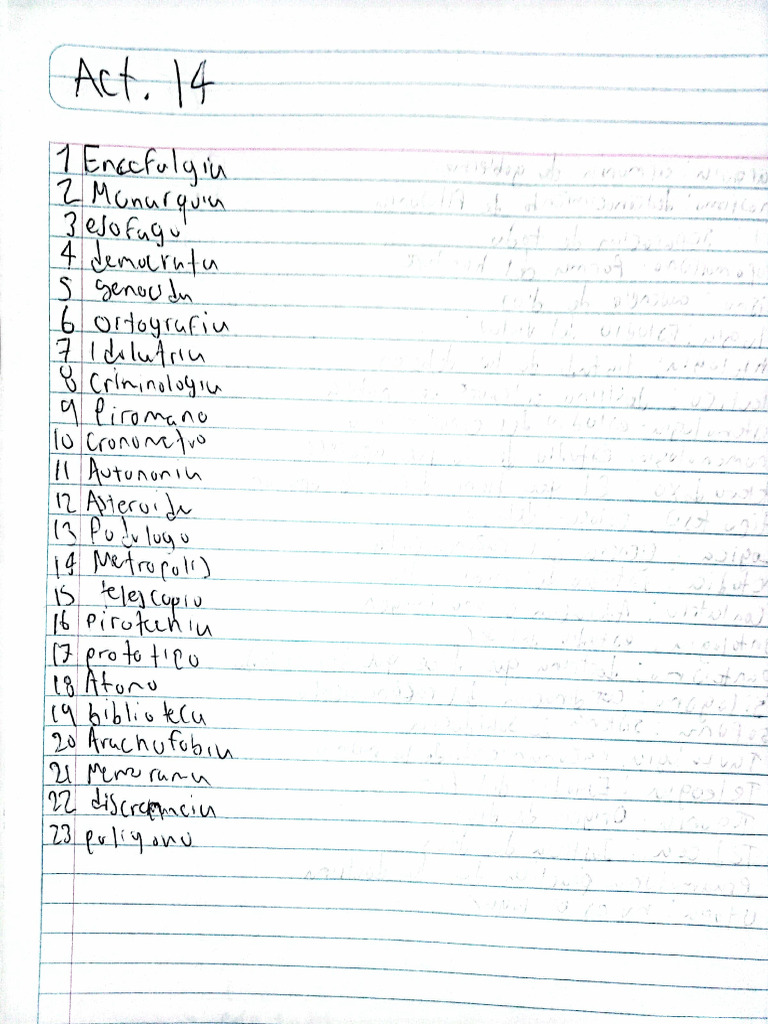 Act. 14
1 Enecfalgia
2 Monarquia
3 esofago
4 democrata
5 genocida
6 ortografia
7 Idolatria
8 Criminologia
9 Piromano
10 Cronometro
11 Autonomia
12 Asteroide
13 Podologo
14 Metropolis
15 telescopio
16 pirotecnia
17 prototipo
18 Atomo
19 biblioteca
20 Aracnofobia
21
22
23 poligono